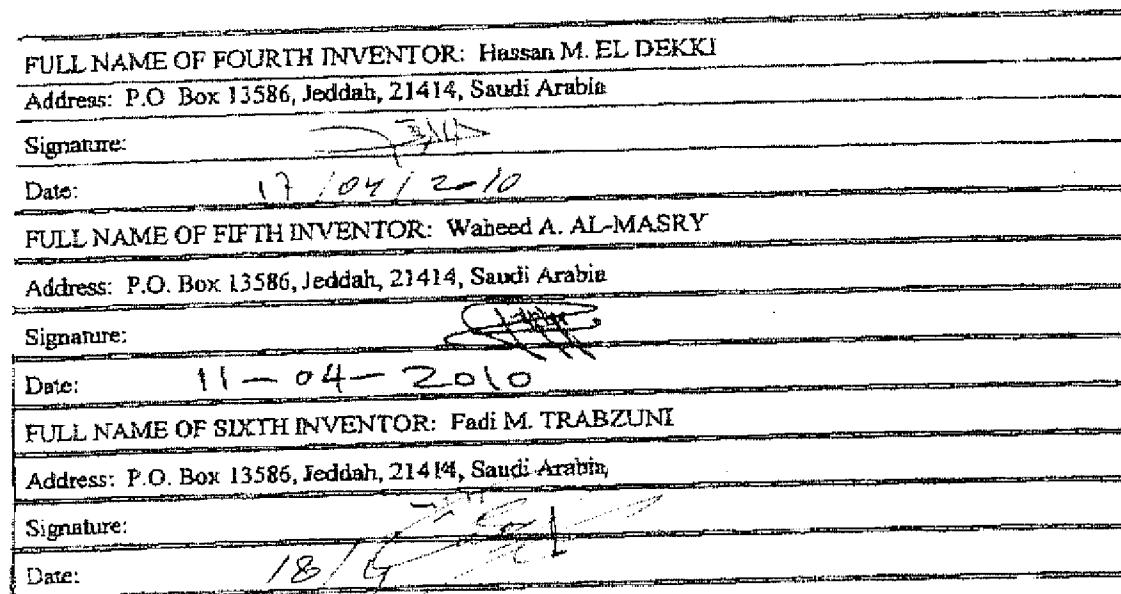 FULL NAME OF FOURTH INVENTOR: Hassan M. EL DEKKI
Address: P.O Box 13586, Jeddah, 21414, Saudi Arabia
Signature:
Date: 17/04/2010
FULL NAME OF FIFTH INVENTOR: Waheed A. AL-MASRY
Address: P.O. Box 13586, Jeddah, 21414, Saudi Arabia
Signature:
Date: 11-04-2010
FULL NAME OF SIXTH INVENTOR: Fadi M. TRABZUNI
Address: P.O. Box 13586, Jeddah, 21414, Saudi Arabia
Signature:
Date: 18/